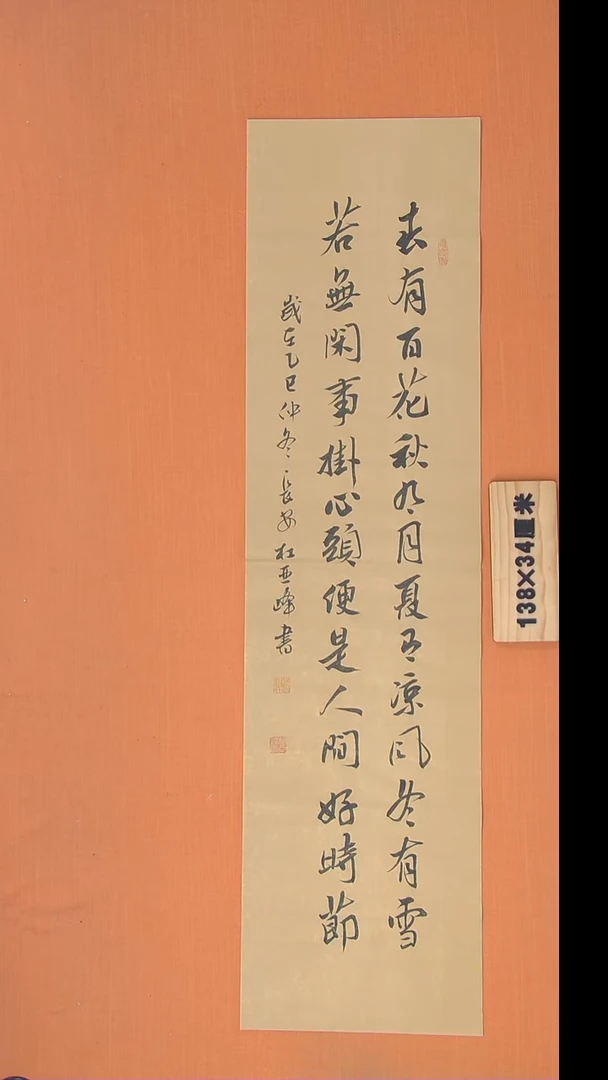 春有百花秋有月夏有凉风冬有雪
若無闲事掛心頭便是人間好時節
歲在乙巳仲冬長安杜亚峰書
138×34厘米